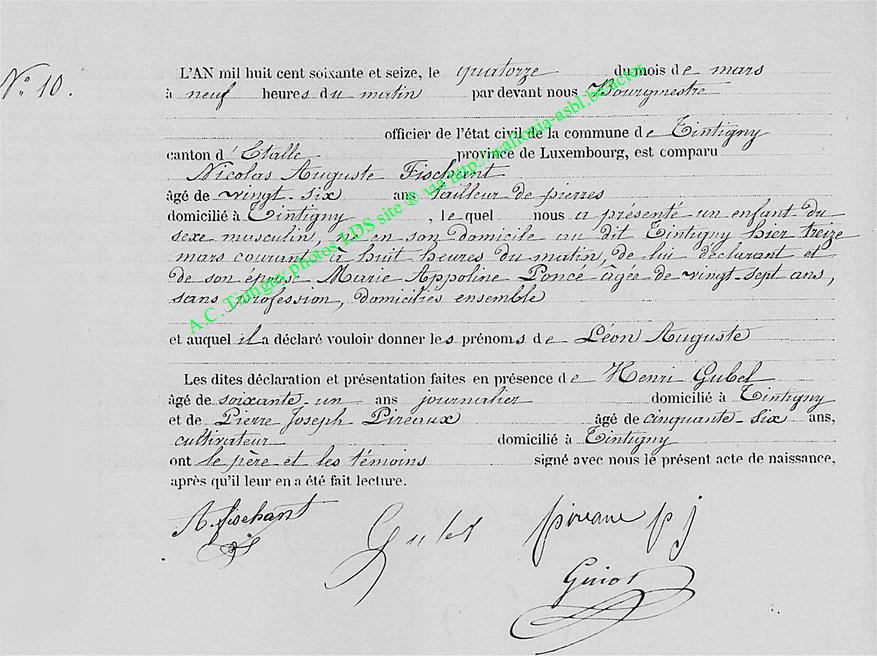 N° 10.
L'AN mil huit cent soixante et seize, le quatorze du mois de mars
à neuf heures du matin par devant nous Bourgmestre
officier de l'état civil de la commune de Tintigny
canton d'Etalle province de Luxembourg, est comparu
Nicolas Auguste Fischant
âgé de vingt-six ans tailleur de pierres
domicilié à Tintigny, lequel nous a présenté un enfant du
sexe masculin, né en son domicile au dit Tintigny hier treize
mars courant à huit heures du matin, de lui déclarant et
de son épouse Marie Appoline Poncé âgée de vingt-sept ans,
sans profession, domiciliés ensemble
et auquel il a déclaré vouloir donner les prénoms de Léon Auguste
Les dites déclaration et présentation faites en présence de Henri Gubel
âgé de soixante-un ans journalier domicilié à Tintigny
et de Pierre Joseph Pireaux âgé de cinquante-six ans,
cultivateur domicilié à Tintigny
ont le père et les témoins signé avec nous le présent acte de naissance,
après qu'il leur en a été fait lecture.
A. fischant
Gubel
pireaux p j
A.C. Tintigny photos LDS site © via http://wallonia-asbl.be/actes